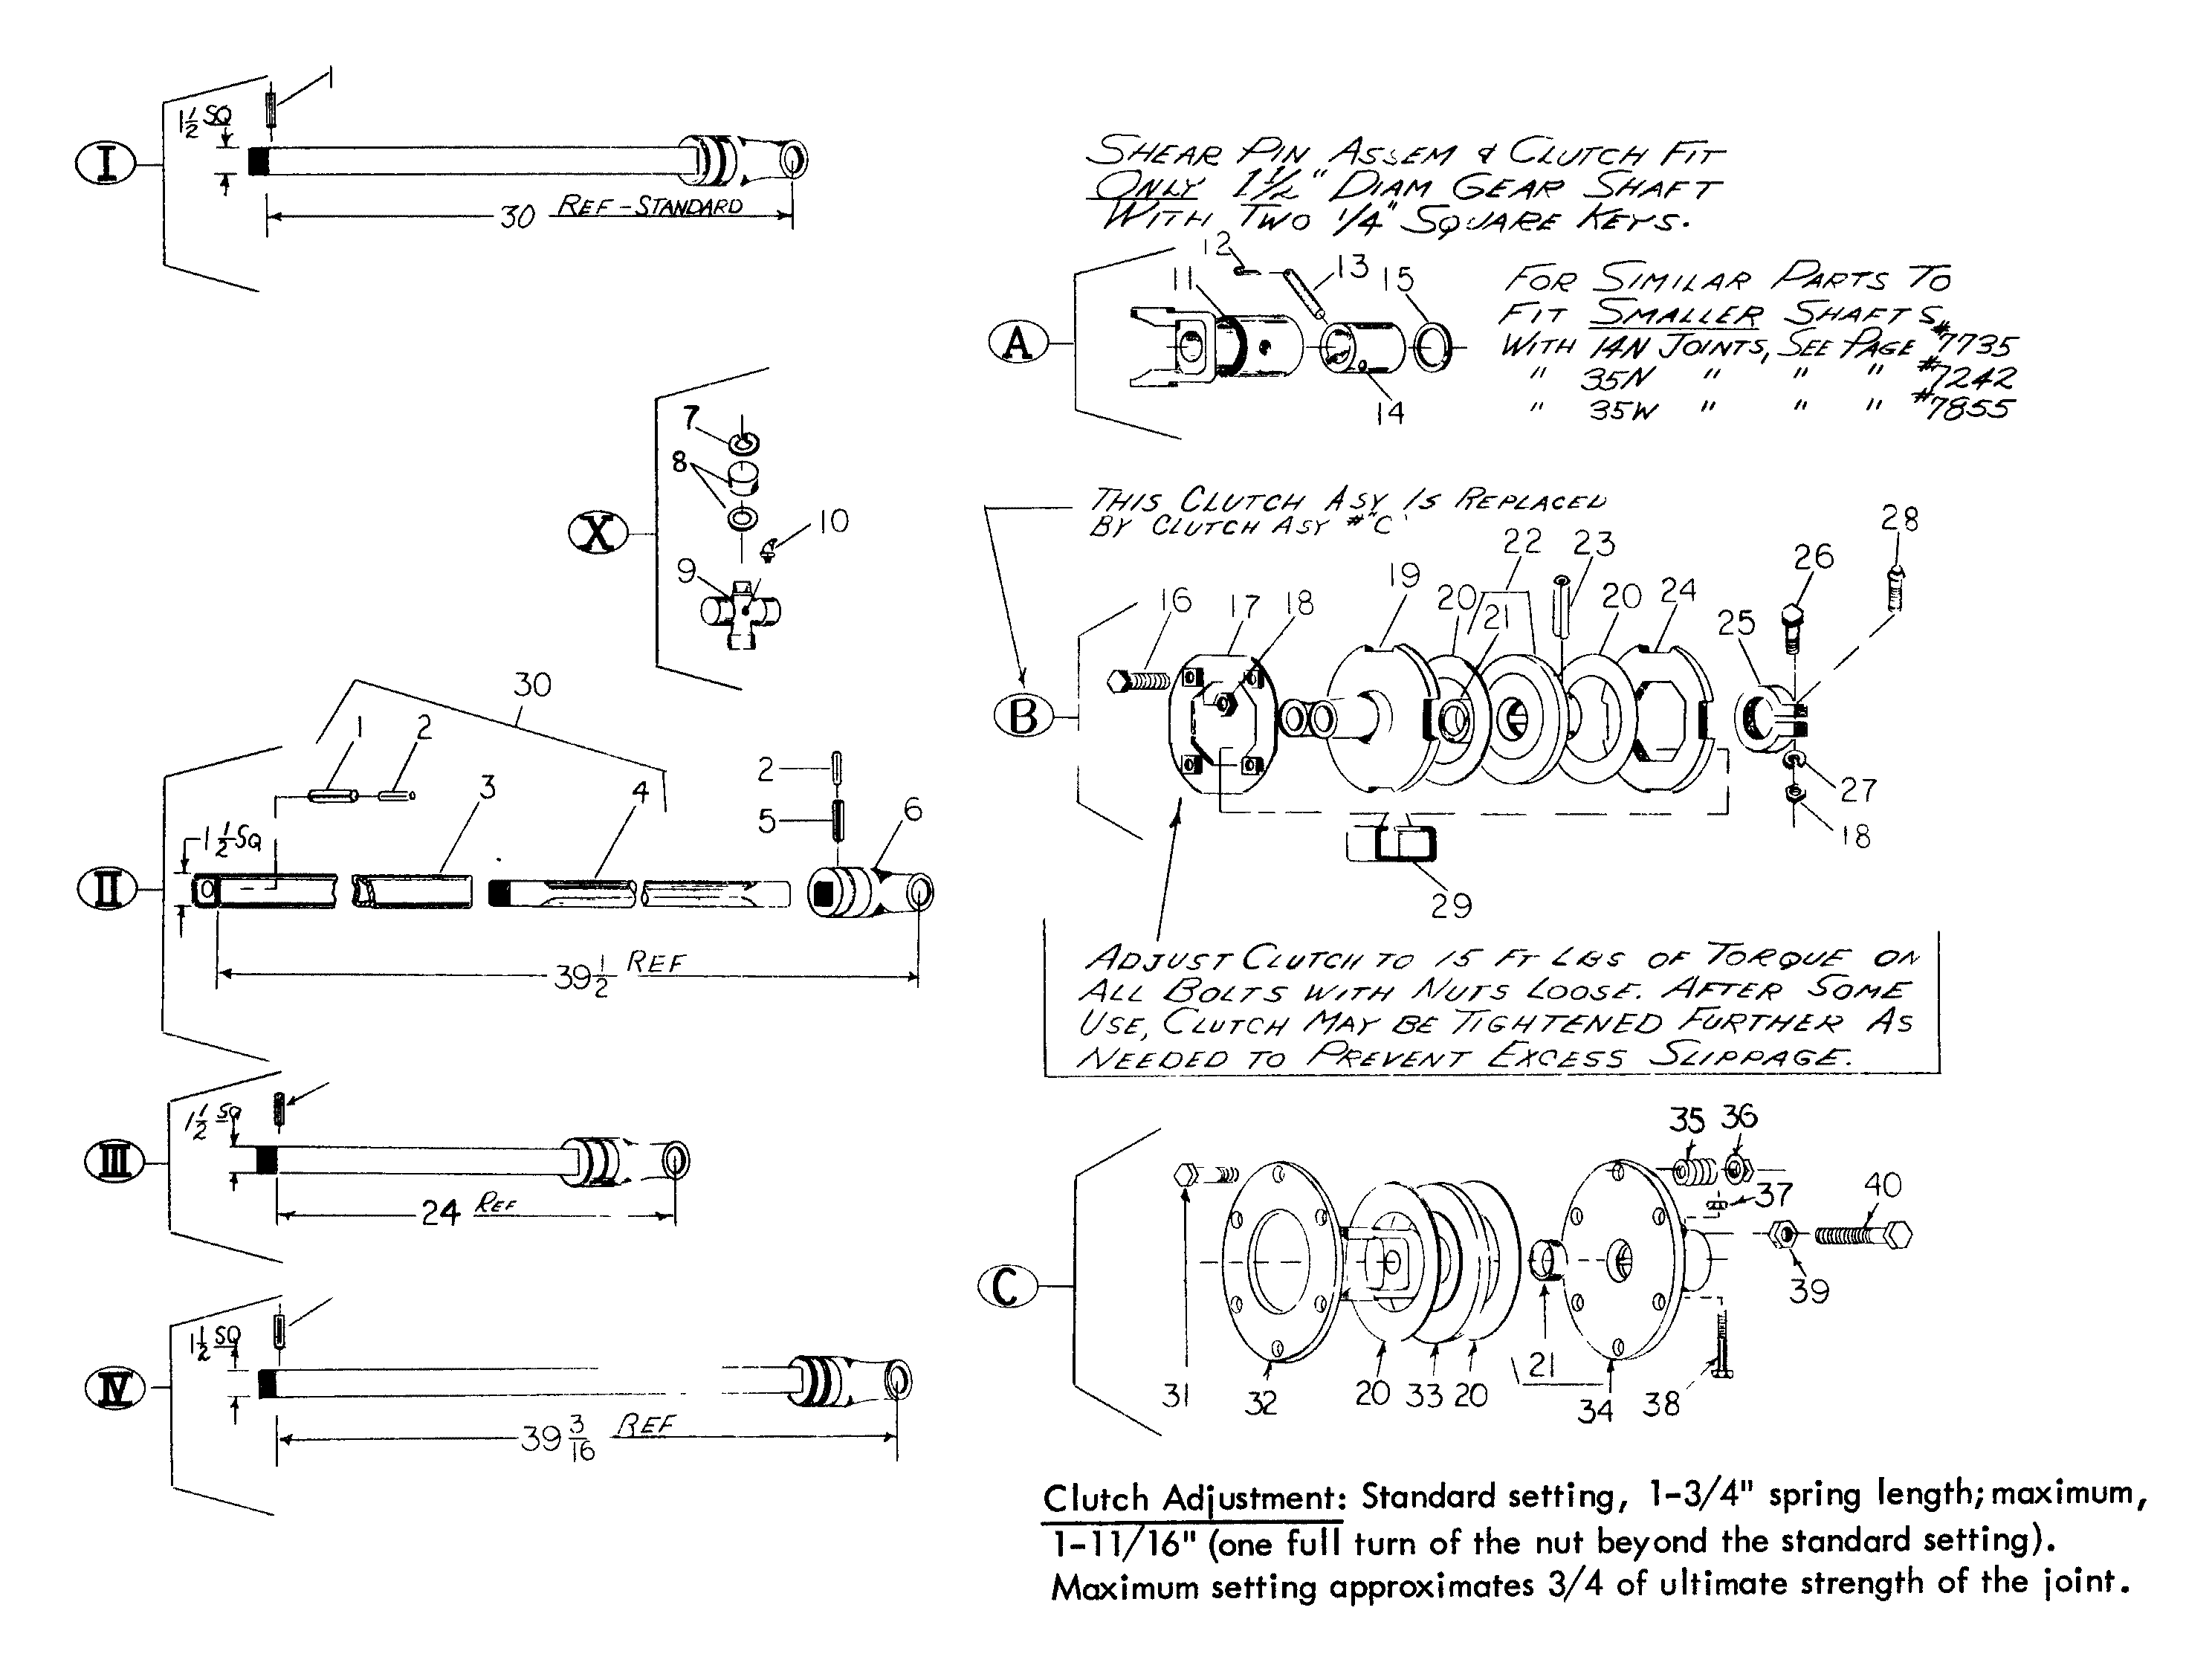 I
1
1 1/2 SQ
30 REF-STANDARD
SHEAR PIN ASSEM & CLUTCH FIT
ONLY 1 1/2" DIAM GEAR SHAFT
WITH TWO 1/4" SQUARE KEYS.
A
12
11
13
15
14
FOR SIMILAR PARTS TO
FIT SMALLER SHAFTS
WITH 14N JOINTS, SEE PAGE #7735
" 35N " " " #7242
" 35W " " " #7855
X
7
8
10
9
THIS CLUTCH ASY IS REPLACED
BY CLUTCH ASY #"C"
B
16
17
18
19
20
21
22
23
20
24
25
26
28
27
18
29
30
II
1
2
3
4
2
5
6
1 1/2 SQ
39 1/2 REF
ADJUST CLUTCH TO 15 FT LBS OF TORQUE ON
ALL BOLTS WITH NUTS LOOSE. AFTER SOME
USE, CLUTCH MAY BE TIGHTENED FURTHER AS
NEEDED TO PREVENT EXCESS SLIPPAGE.
III
1 1/2 SQ
24 REF
IV
1 1/2 SQ
39 3/16 REF
C
35
36
37
40
39
31
32
20
33
20
21
34
38
Clutch Adjustment: Standard setting, 1-3/4" spring length; maximum,
1-11/16" (one full turn of the nut beyond the standard setting).
Maximum setting approximates 3/4 of ultimate strength of the joint.